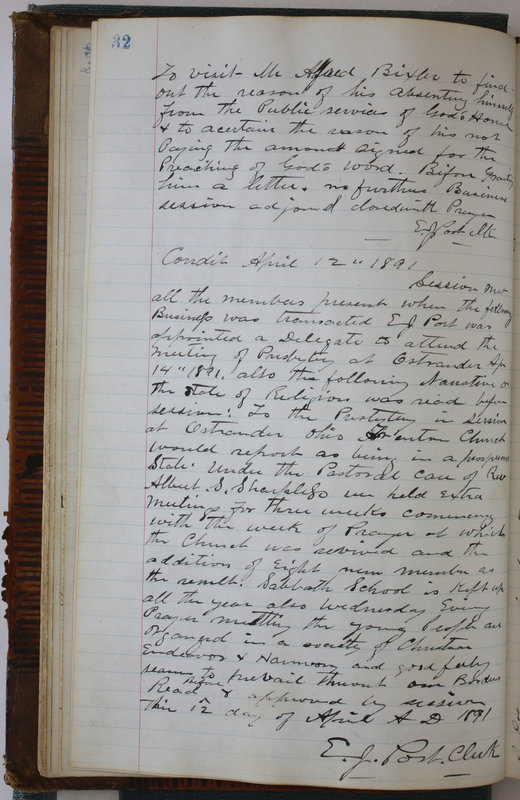 32
To visit Mr Alfred Bixler to find
out the reason of his absenting himself
from the Public services of God's House
& to acertain the reason of his not
Paying the amount signed for the
Preaching of God's Word. Before Granting
him a letter. no further Business
session adjornd closed with Prayer
E J Post Clk
Condit April 12" 1891
Session met
all the members present when the following
Business was transacted E J Post was
appointed a Delegate to attend the
meeting of Presbytry at Ostrander Apr
14" 1891. also the following Narative on
the state of Religion was read before
session: To the Presbytery in Session
at Ostrander Ohio Trenton Church
would report as being in a prosperous
State under the Pastoral care of Rev
Albert S. Sharpless we held Extra
Meetings for three weeks commencing
with the week of Prayer at which
the Church was revived and the
addition of Eight new member as
the result. Sabbath School is Kept up
all the year also Wednesday Evening
Prayer meeting the young People are
organized in a society of Christian
Endeavor & Harmony and good feeling
seams to Prevail thruout our Borders
Read before & approved by session
This 12 day of April A D 1891
E. J. Post. Clerk